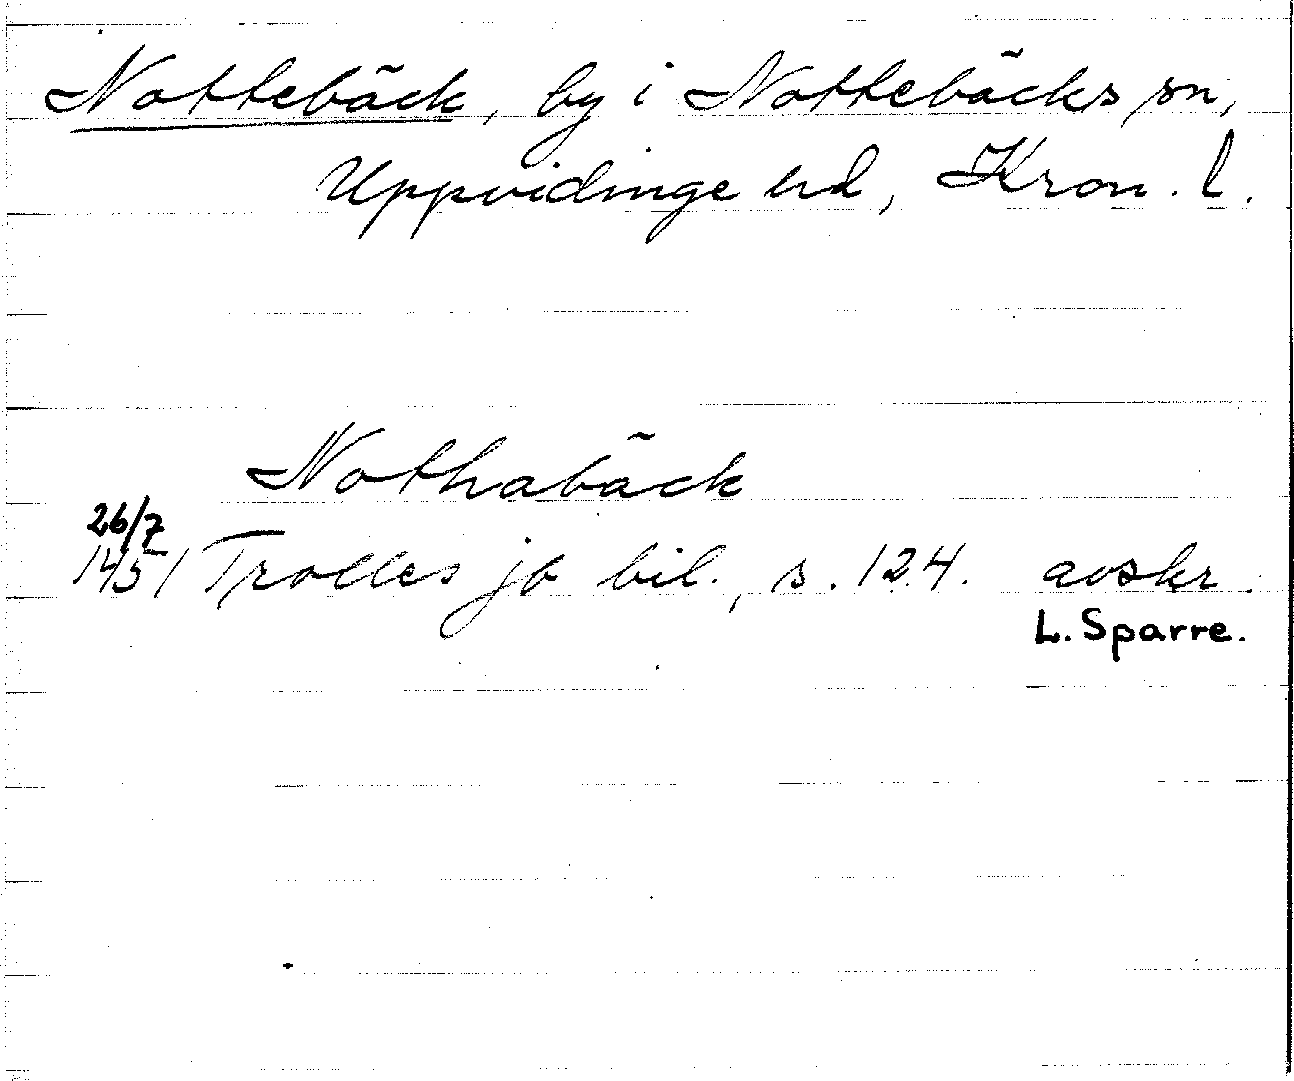 Nottebäck, by i Nottebäcks sn,
Uppvidinge hd, Kron. l.
Nothabäck
26/7
1451 Trolles jb bil., s. 124. avskr.
L. Sparre.